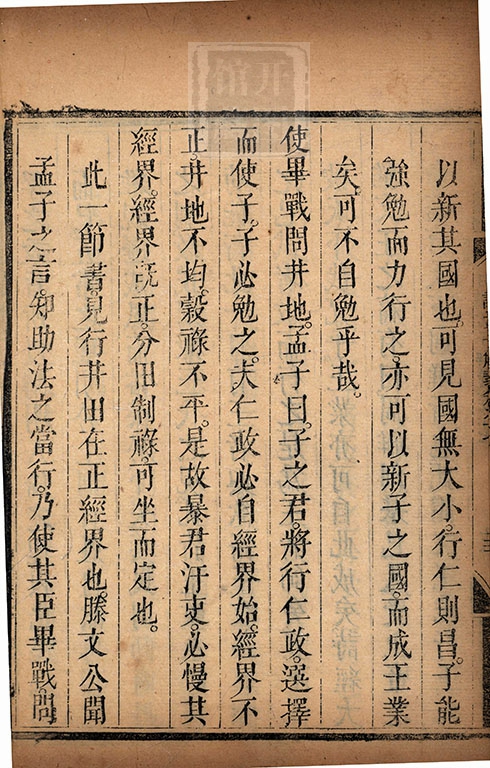 以新其國也。可見國無大小。行仁則昌。子能
強勉而力行之。亦可以新子之國。而成王業
矣。可不自勉乎哉。
使畢戰問井地。孟子曰。子之君。將行仁政。選擇
而使子。子必勉之。夫仁政必自經界始。經界不
正。井地不均。穀祿不平。是故暴君汙吏。必慢其
經界。經界旣正。分田制祿。可坐而定也。
此一節書。見行井田在正經界也。滕文公聞
孟子之言。知助法之當行。乃使其臣畢戰。問